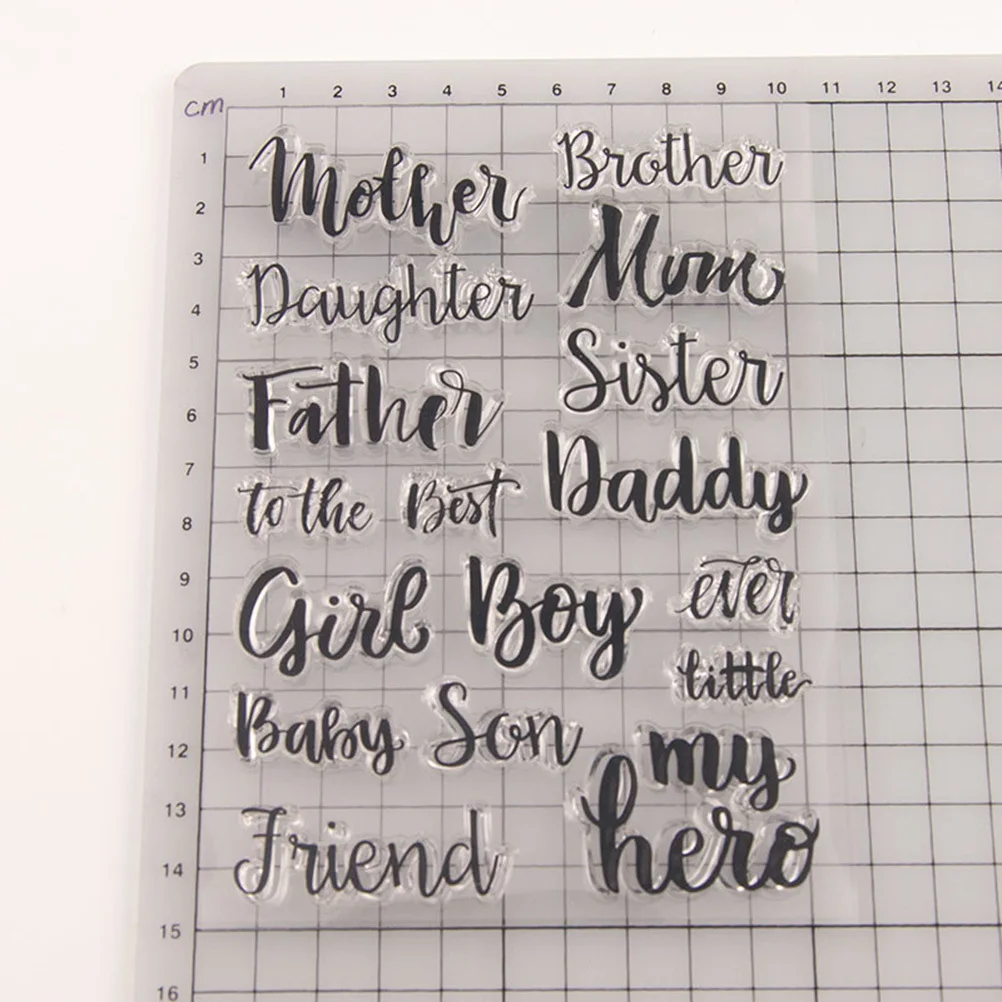 1 2 3 4 5 6 7 8 9 10 11 12 13 14
cm
1
2
3
4
5
6
7
8
9
10
11
12
13
14
15
16
Mother
Brother
Mom
Daughter
Sister
Father
Daddy
to the Best
Girl Boy
ever
little
Baby Son
my
hero
Friend